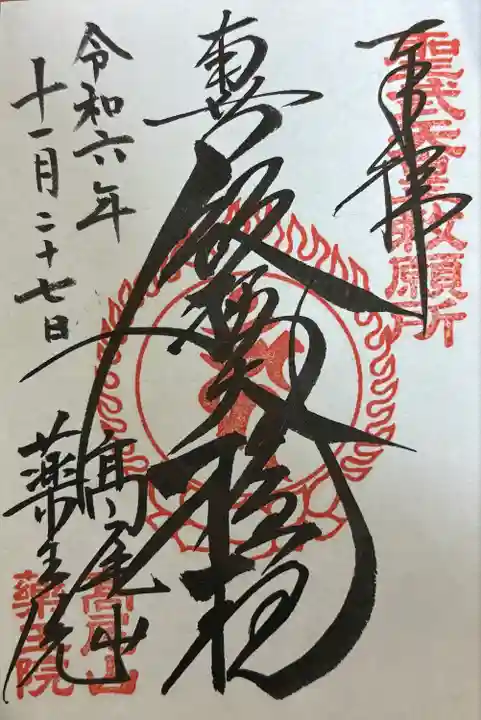 奉拝
聖武天皇勅願所
飯縄大権現
令和六年
十一月二十七日
高尾山
薬王院
高尾山
薬王院